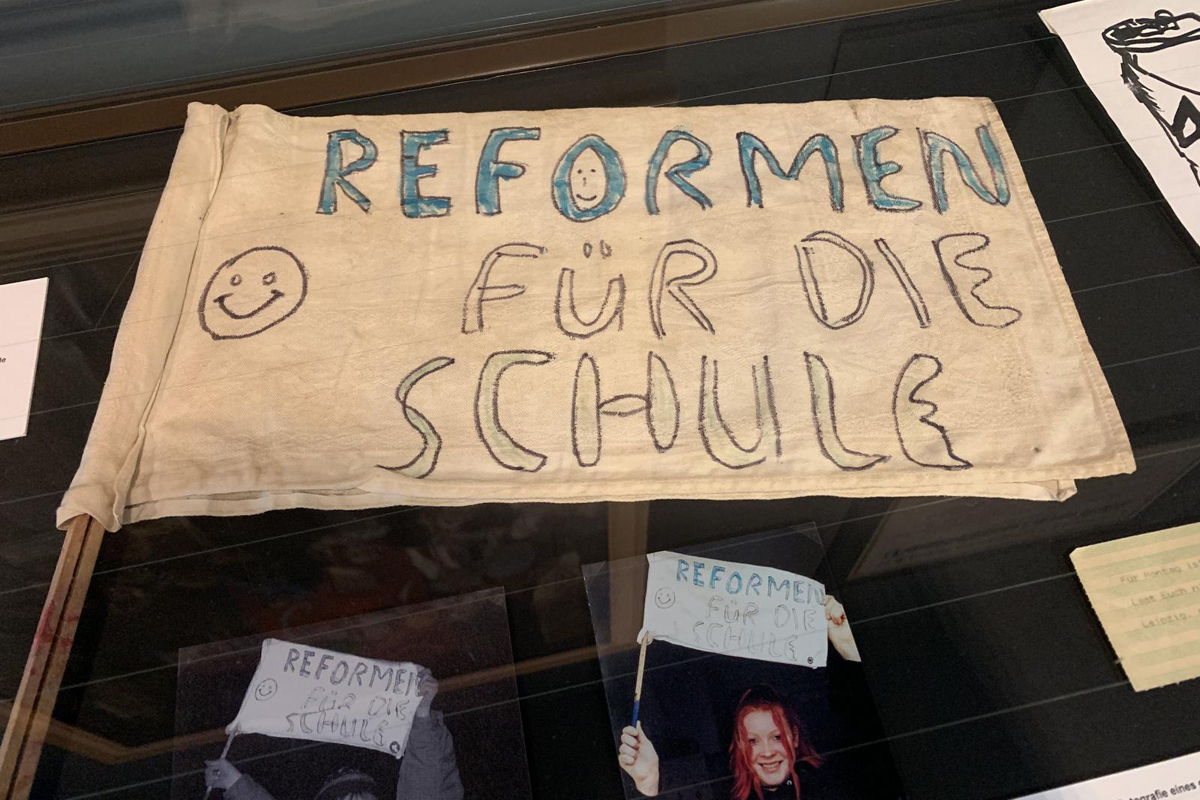 REFORMEN
FÜR DIE
SCHULE
REFORMEN
FÜR DIE
SCHULE
REFORMEN
FÜR DIE
SCHULE
Für Montag
Leipzig.
eines